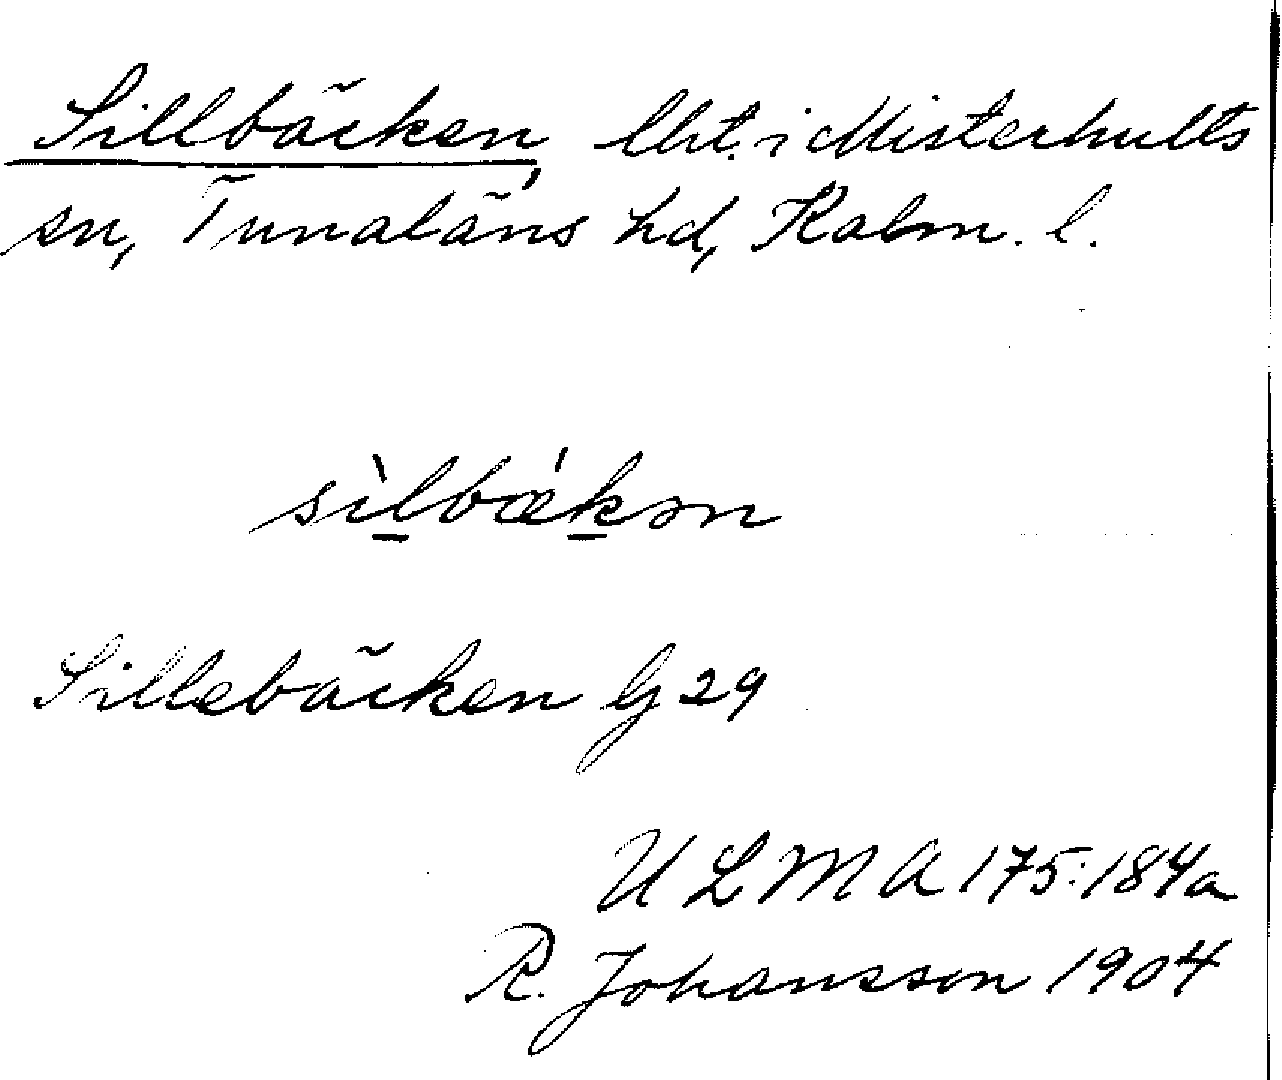 Sillbäcken, lht. i Misterhults
sn, Tunaläns hd, Kalm. l.
sìlbǽkən
Sillebäcken G 29
ULMA 175:184a
R. Johansson 1904